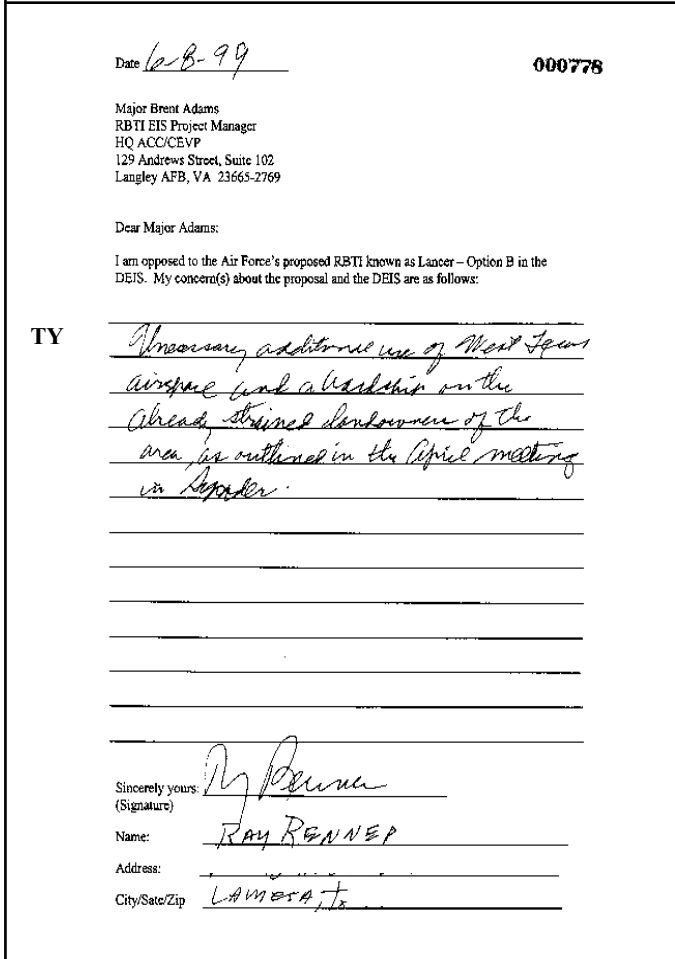 Date 6-8-99
000778
Major Brent Adams
RBTI EIS Project Manager
HQ ACC/CEVP
129 Andrews Street, Suite 102
Langley AFB, VA 23665-2769
Dear Major Adams:
I am opposed to the Air Force's proposed RBTI known as Lancer – Option B in the
DEIS. My concern(s) about the proposal and the DEIS are as follows:
TY
Unecessary additional use of West Texas
airspace and a hardship on the
already strained landowners of the
area, as outlined in the April meeting
in Snyder.
Sincerely yours: Ray Renner
(Signature)
Name: RAY RENNER
Address:
City/Sate/Zip LAMESA, Tx